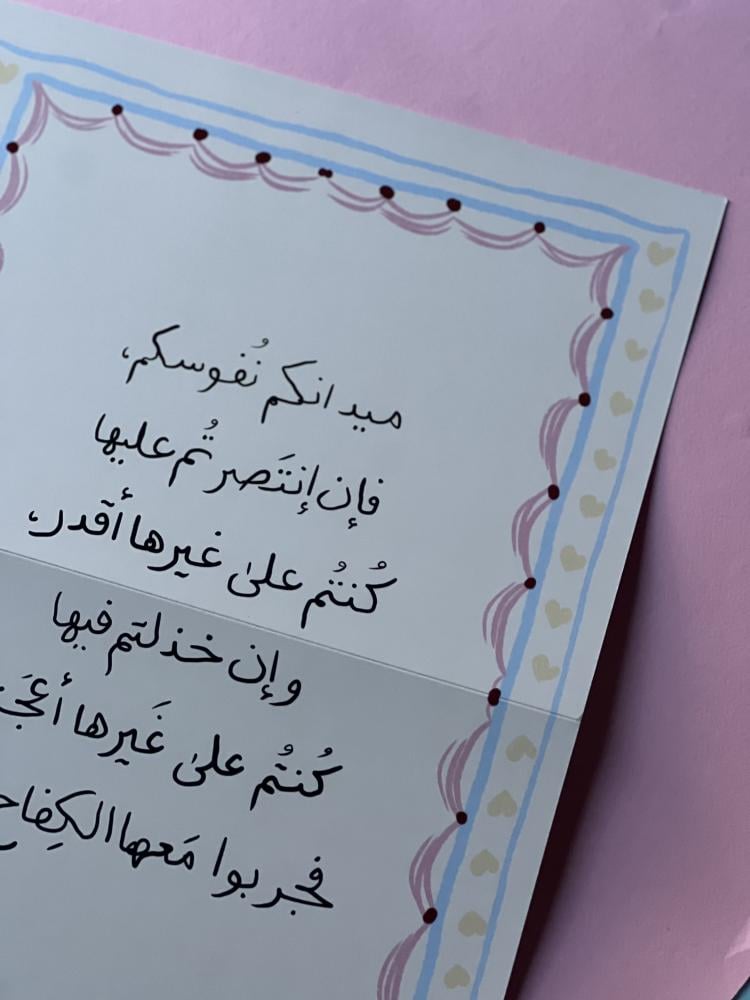 ميدانكم نُفوسكم،
فإن إنتَصرتُم عليها
كُنتُم علىٰ غيرها أقدر،
وإن خذلتم فيها
كُنتُم علىٰ غَيرها
فجربوا مَعها الكِفاح